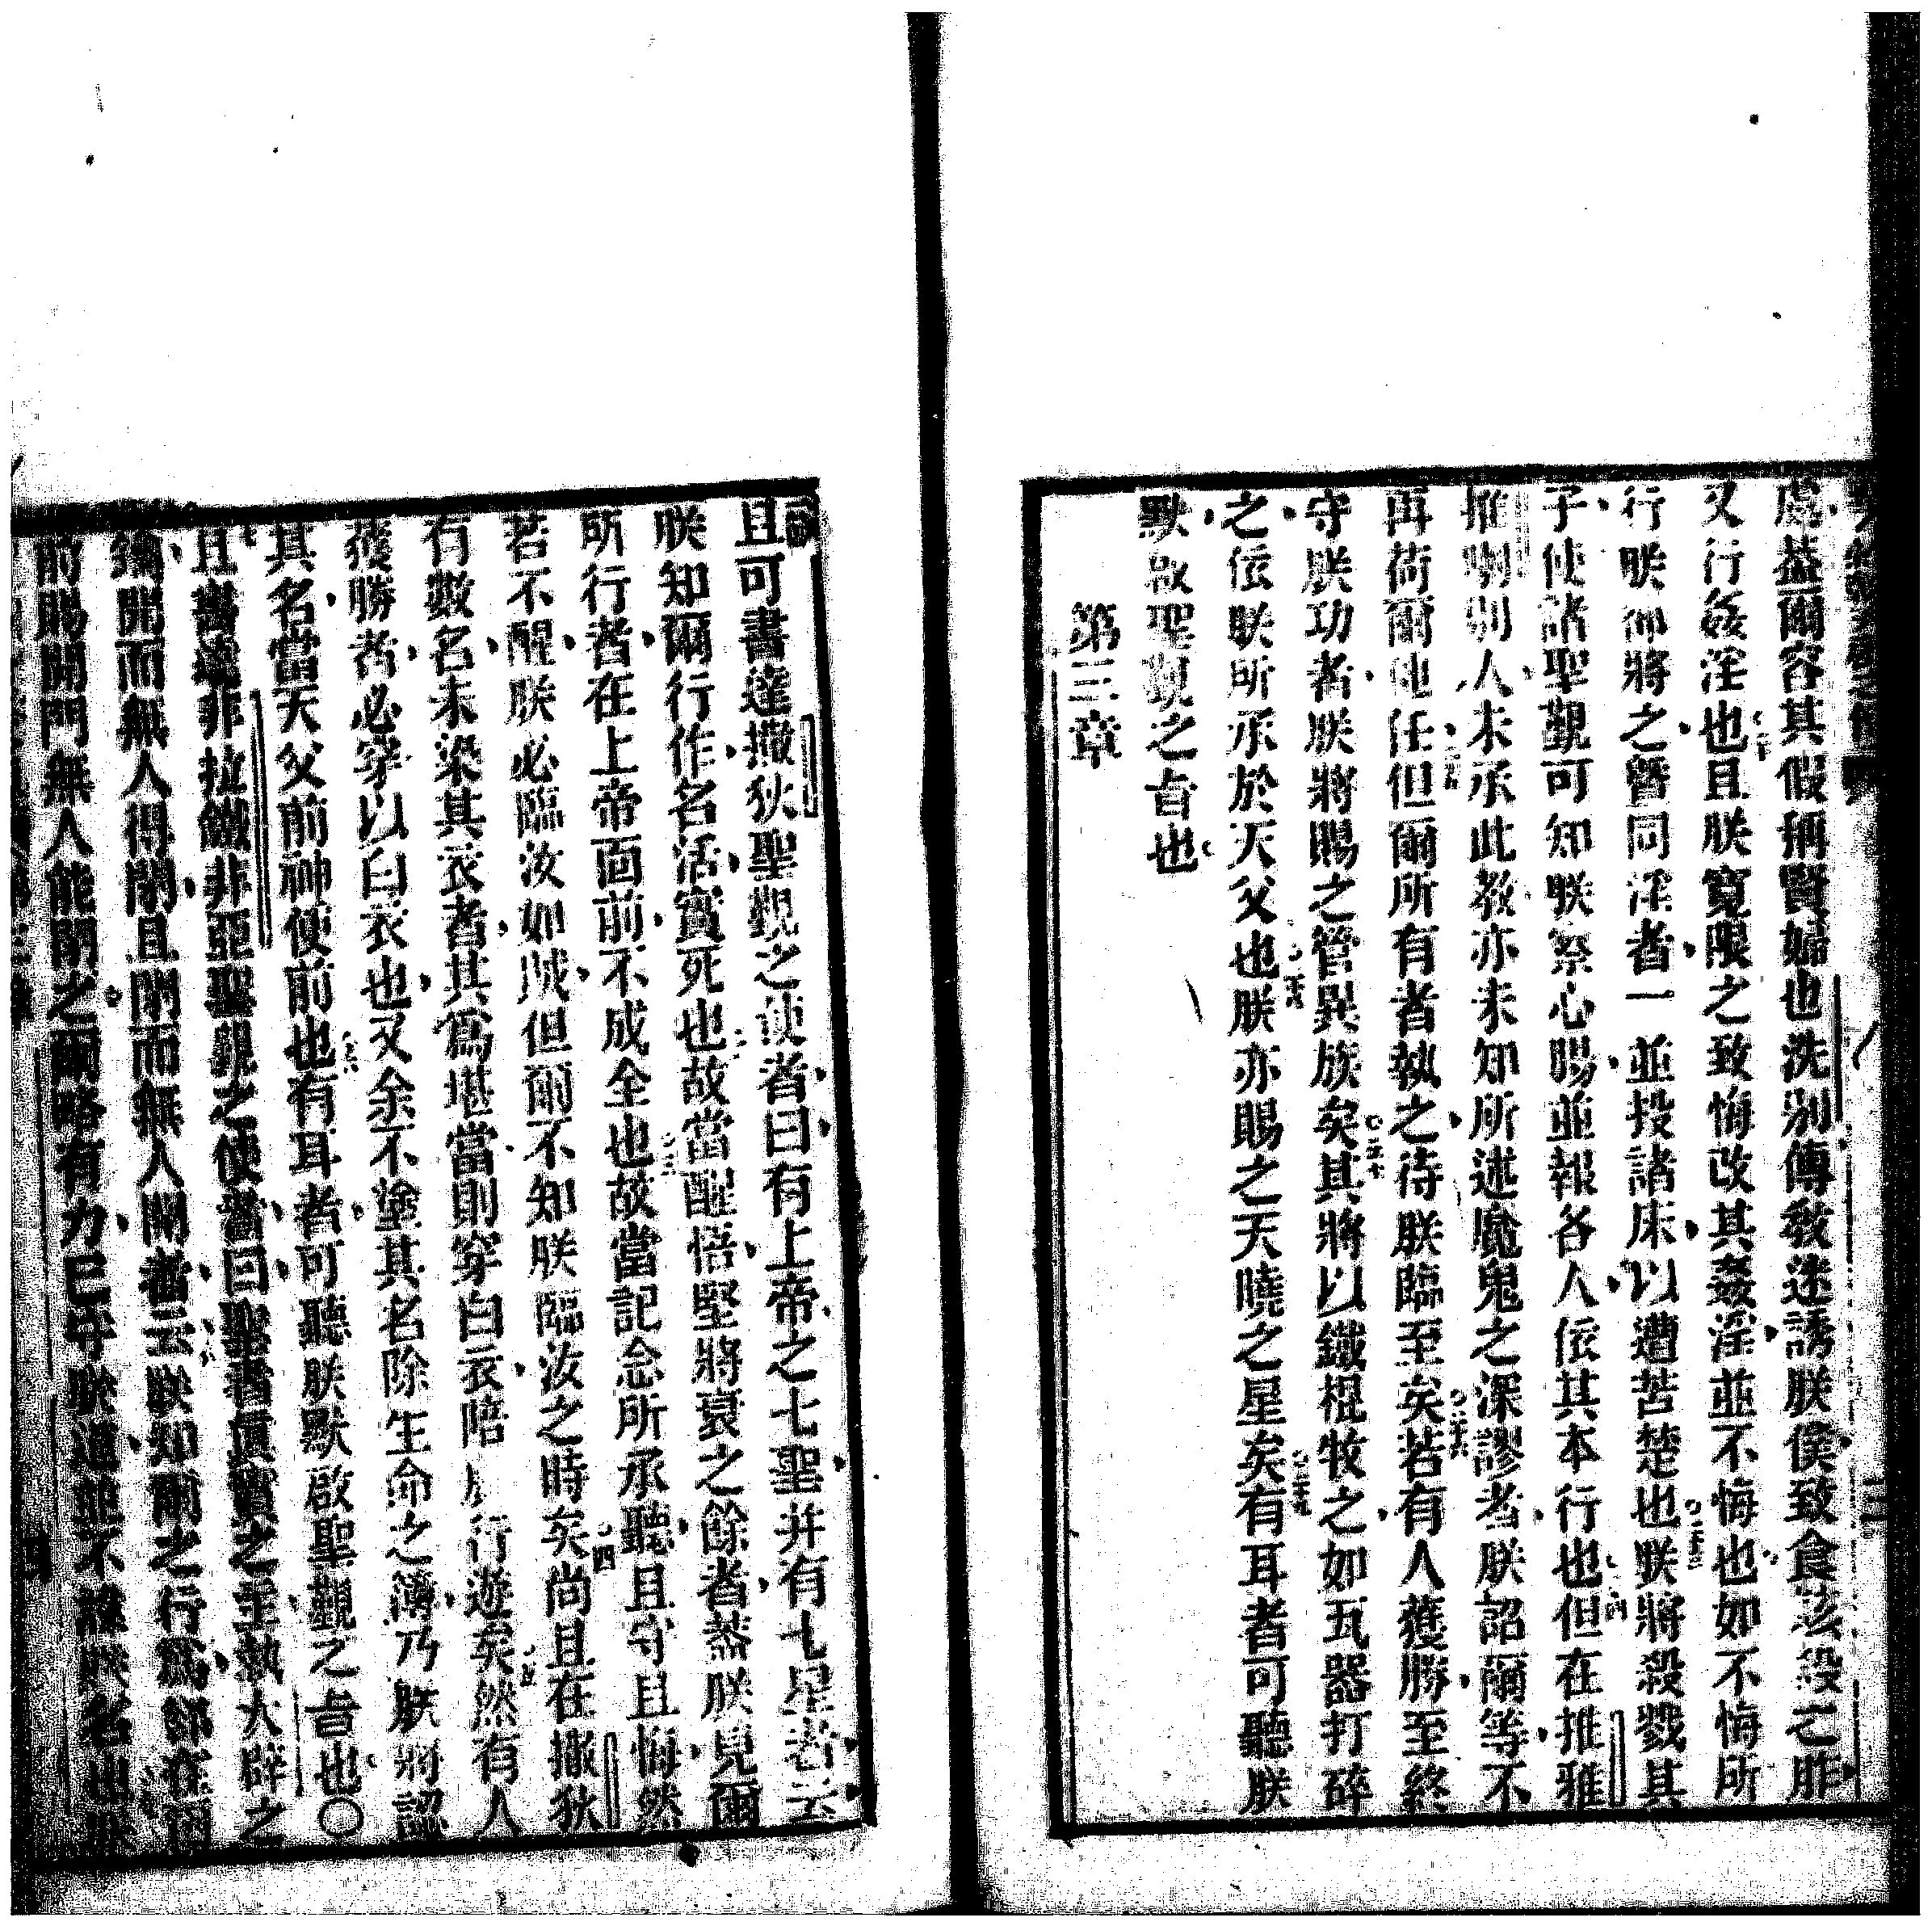 處葢爾容其假稱賢婦也洗別傳教迷誘朕僕致食該殺之胙
又行姦淫也且朕寬限之致悔改其姦淫並不悔也如不悔所
行朕卽將之曁同淫者一並投諸床以遭苦楚也朕將殺戮其
子使諸聖覲可知朕察心腸並報各人依其本行也但在推雅
推喇別人未承此教亦未知所述魔鬼之深謬者朕詔爾等不
再荷爾他任但爾所有者執之待朕臨至矣若有人獲勝至終
守朕功者朕將賜之管異族矣其將以鐵棍牧之如瓦器打碎
之依朕所承於天父也朕亦賜之天曉之星矣有耳者可聽朕
默啟聖覲之旨也
第三章
且可書達撒狄聖覲之使者曰有上帝之七聖幷有七星者云
朕知爾行作名活實死也故當醒悟堅將衰之餘者葢朕見爾
所行者在上帝面前不成全也故當記念所承聽且守且悔然
若不醒朕必臨汝如賊但爾不知朕臨汝之時矣尚且在撒狄
有數名未染其衣者其爲堪當則穿白衣陪 行遊矣然有人
獲勝者必穿以白衣也又余不塗其名除生命之簿乃朕將認
其名當天父前神使前也有耳者可聽朕默啟聖覲之旨也〇
且書達非拉鐵非亞聖覲之使者曰聖者眞實之主執大辟之
鑰開而無人得閉且閉而無人開者云朕知爾之行爲卻在爾
前賜開門無人能閉之爾略有力已守朕道並不諱朕名也